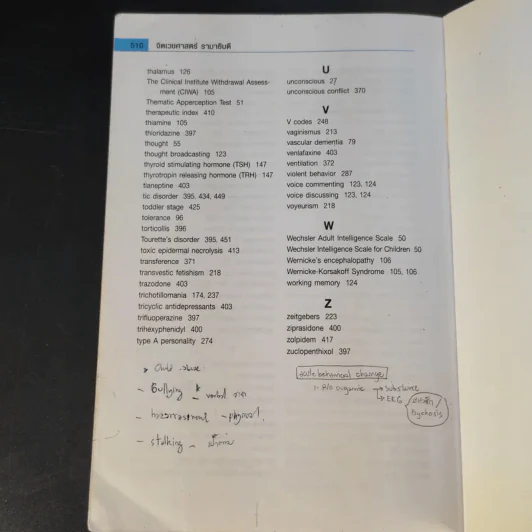 510 จิตเวชศาสตร์ รามาธิบดี
thalamus 126
The Clinical Institute Withdrawal Assess-
ment (CIWA) 105
Thematic Apperception Test 51
therapeutic index 410
thiamine 105
thioridazine 397
thought 55
thought broadcasting 123
thyroid stimulating hormone (TSH) 147
thyrotropin releasing hormone (TRH) 147
tianeptine 403
tic disorder 395, 434, 449
toddler stage 425
tolerance 96
torticollis 396
Tourette's disorder 395, 451
toxic epidermal necrolysis 413
transference 371
transvestic fetishism 218
trazodone 403
trichotillomania 174, 237
tricyclic antidepressants 403
trifluoperazine 397
trihexyphenidyl 400
type A personality 274
Child abuse
- Bullying verbal
- physical
- stalking -
U
unconscious 27
unconscious conflict 370
V
V codes 248
vaginismus 213
vascular dementia 79
venlafaxine 403
ventilation 372
violent behavior 287
voice commenting 123, 124
voice discussing 123, 124
voyeurism 218
W
Wechsler Adult Intelligence Scale 50
Wechsler Intelligence Scale for Children 50
Wernicke's encephalopathy 106
Wernicke-Korsakoff Syndrome 105, 106
working memory 124
Z
zeitgebers 223
ziprasidone 400
zolpidem 417
zuclopenthixol 397
behavioral change
R/O organic → substance
→ EKG